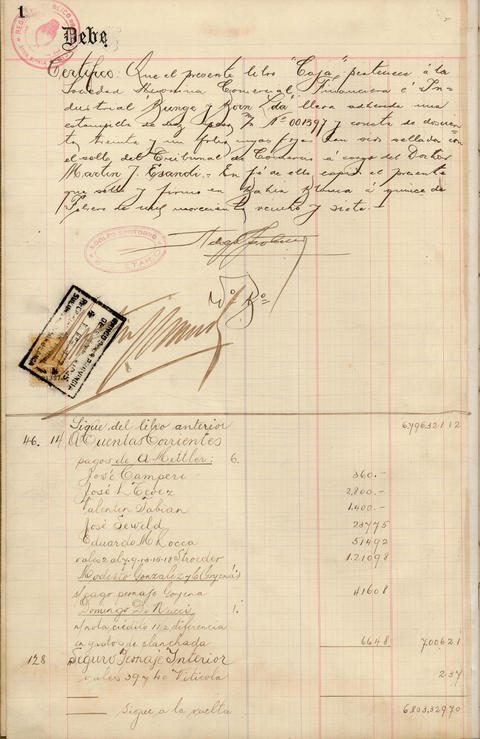 1
Debe
Certifico: Que el presente libro "Caja" pertenece á la
Sociedad Anonima Comercial, Financiera é In-
dustrial Bunge y Born Lda lleva adherida una
estampilla de diez pesos m/n Nº 001397 y consta de doscien-
tas treinta y una fojas cuyas fojas han sido selladas con
el sello del Tribunal de Comercio á cargo del Doctor
Martin J. Esandi.- En fé de ello expido el presente
que sello y firmo en Bahia Blanca á quince de
Febrero de mil novecientos veinte y siete.-
ADOLFO
Vº Bº
Sigue del libro anterior 6.796.321 12
46. 14 A Cuentas Corrientes
pagos de A Mettler: 6.
José Camperi 360.-
José L Tevez 2,800.-
Valentin Fabian 1.400.-
José Seweld 237 75
Eduardo M Rocca 514 92
vales 2 al 7-9-13-16-18 Stroeder 1.210 98
Modesto Gonzalez y Cia Goyena:
s/ pago peonaje Goyena 416 08
Domingo Di Nucci 1.
n/ nota crédito 112 diferencia
en gudos de planchada 66 48 7.006 21
128 Seguro Peonaje Interior
vales 39 y 40 Viticola 2 37
Sigue a la vuelta 6.803.329 70